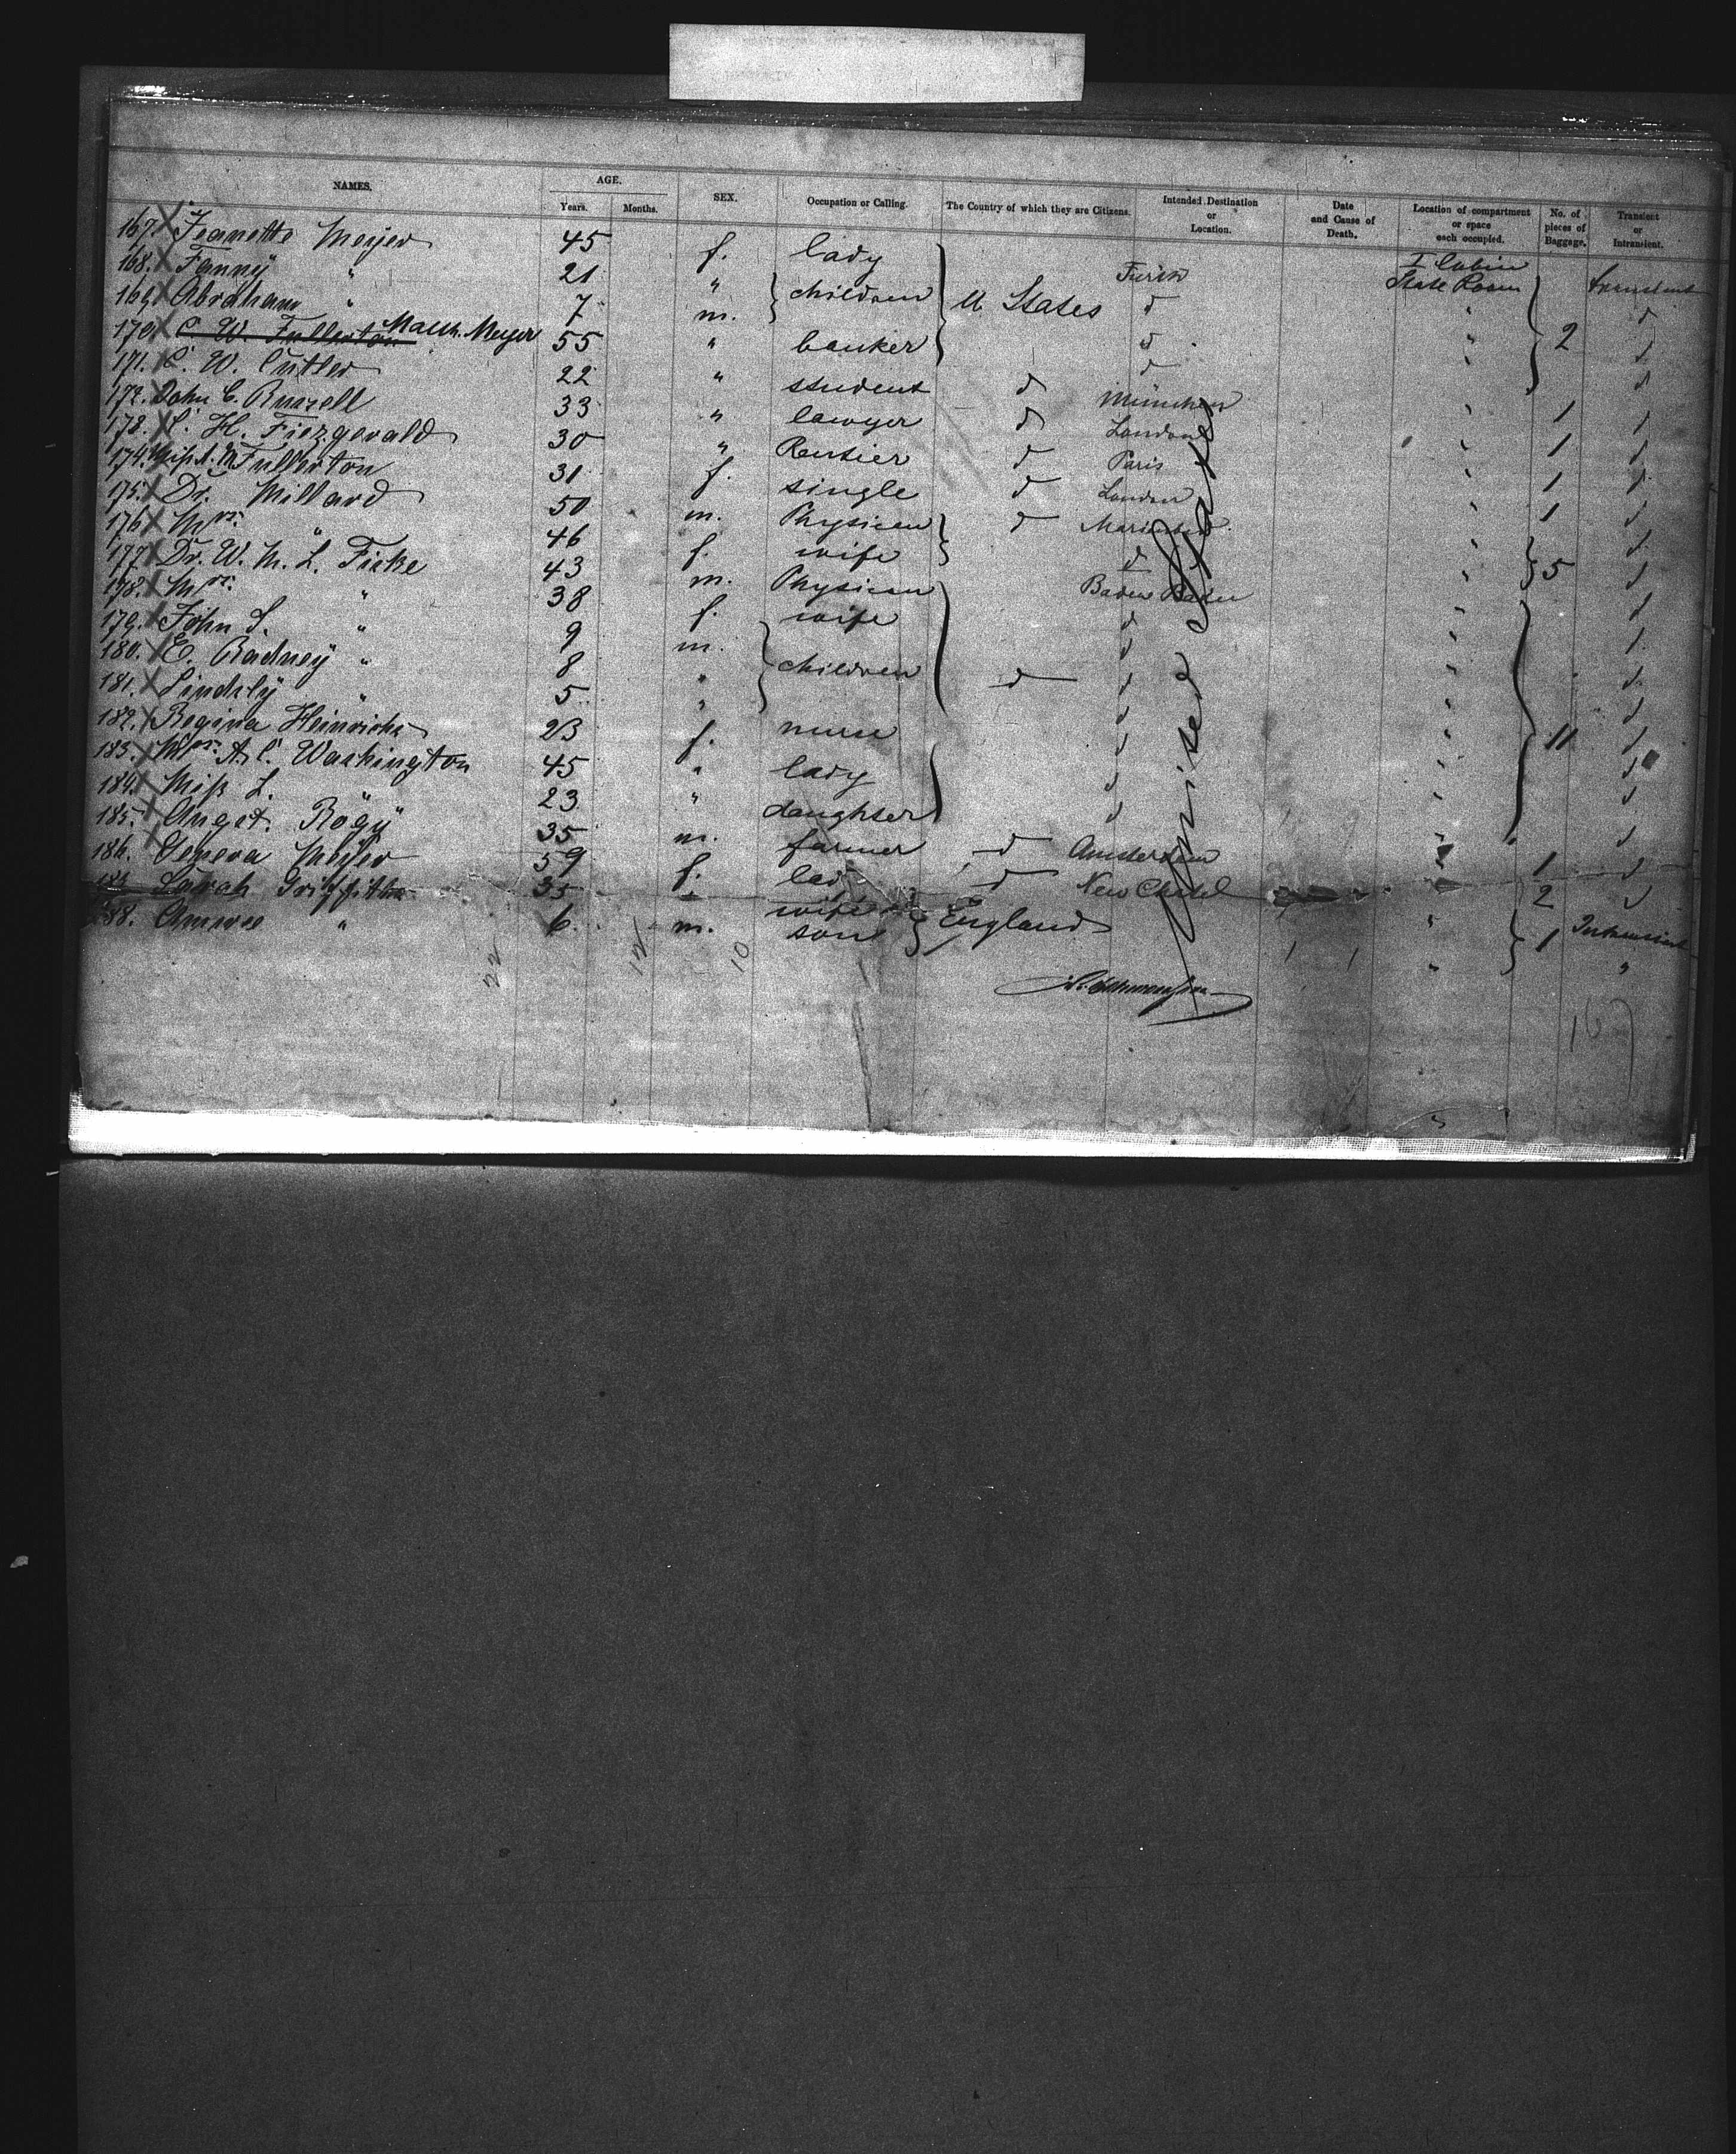 NAMES. AGE. Years. Months. SEX. Occupation or Calling. The Country of which they are Citizens. Intended Destination or Location. Date and Cause of Death. Location of compartment or space each occupied. No. of pieces of Baggage. Transient or Intransient.
167. X Jeanette Meyer 45 f. lady Zürich I Cabin State Room transient
168. X Fanny " 21 " children U States d " d
169. X Abraham " 7 m. d " 2 d
170. X C. W. Fullerton Math. Meyer 55 " banker d " d
171. X C. W. Cutler 22 " student d München " 1 d
172. X John C. Russell 33 " lawyer d London " 1 d
173. X L. H. Fiezgerald 30 " Rentier d Paris " 1 d
174. Miss A. M. Fullerton 31 f. single d London " 1 d
175. X Dr. Millard 50 m. Physician d " d
176. X Mrs. " 46 f. wife d " 5 d
177. X Dr. W. M. L. Fiske 43 m. Physician Baden Baden " d
178. X Mrs. " 38 f. wife d " d
179. X John S. " 9 m. children d " d
180. X E. Radney " 8 " d d " d
181. X Lindsly " 5 " d " d
182. X Regina Heinrichs 23 f. nurse d " 11 d
183. X Mrs. A. C. Washington 45 " lady d " d
184. X Miss L. " 23 " daughter d " d
185. X Angst. Rögy 35 m. farmer d Amsterdam " 1 d
186. Geneva Meyer 59 f. lady d New Chatel " 2 d
187. Sarah Griffiths 35 " wife England " 1 Intransient
188. " 6 m. son " "
United States
22 12 10